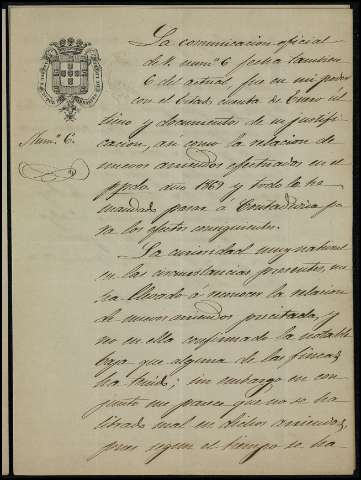 La comunicacion oficial
de V. num.º 6 fecha tambien
6 del actual fue en mi poder
con el Estado cuenta de Enero úl
timo y documentos de su justifi-
Num.º 6.
cacion, asi como la relacion de
nuevos arriendos efectuados en el
ppdo. año 1869 y todo lo he
mandado pasar á Contaduria pa
ra los efectos consiguientes.
La curiosidad muy natural
en las circunstancias presentes, me
ha llevado á reconocer la relacion
de nuevos arriendos precitada, y
veo en ella confirmada la notable
baja que alguna de las fincas
ha tenido; sin embargo en con
junto me parece que no se ha
librado mal en dichos arriendos,
pues segun el tiempo se ha